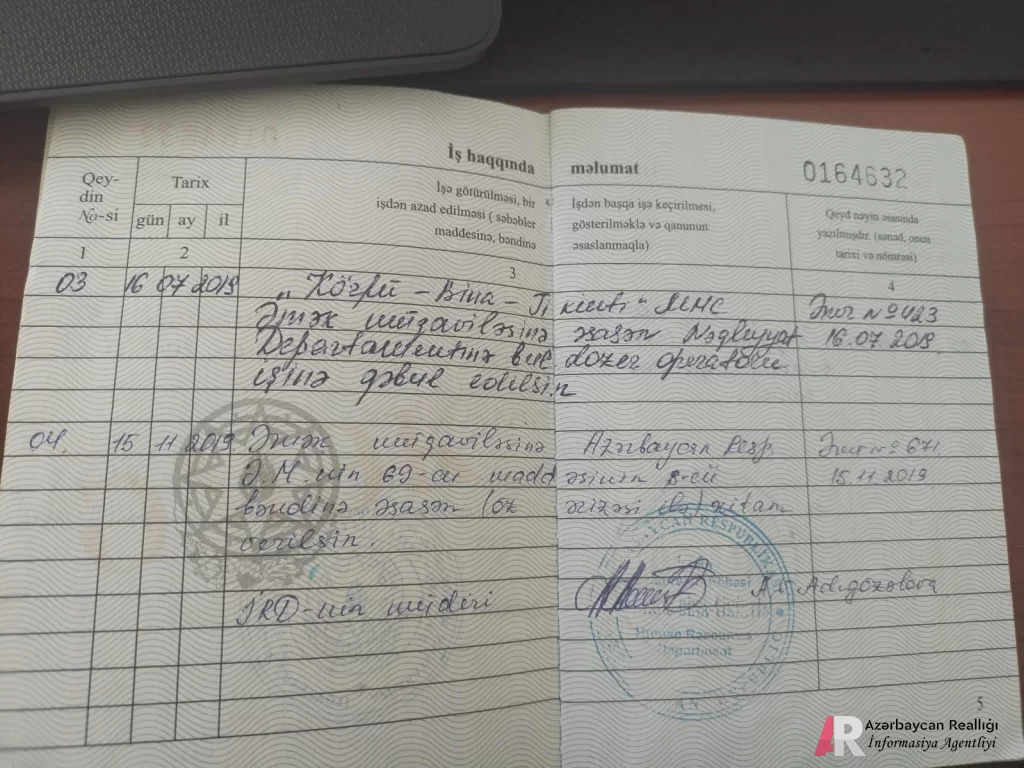 İş haqqında məlumat 0164632
Qey-
din
No-si
Tarix
gün ay il
İşə götürülməsi, bir
işdən azad edilməsi ( səbəblər
maddesinə, bəndinə
İşdən başqa işə keçirilmesi,
gösterilməklə və qanunun
əsaslanmaqla)
Qeyd nəyin əsasında
yazılmışdır. (sənəd, onun
tarixi və nömrəsi)
1 2 3 4
03 16 07 2019 „Körpü - Bina - Tikinti" MMC Əmr №423
Əmək müqaviləsinə əsasən Nəqliyyat 16.07 2019.
Departamentinə buldozer operatoru
işinə qəbul edilsin
04. 15 11 2019 Əmək müqaviləsinə Azərbaycan Resp. Əmr №671.
Ə.M.-nin 69-cu maddəsinin 8-cü 15 11 2019
bəndinə əsasən /öz ərizəsi ilə/ xitam
verilsin.
İRD-nin müdiri A. Adıgözəlova
Human Resources
Department
5
AR Azərbaycan Reallığı
İnformasiya Agentliyi